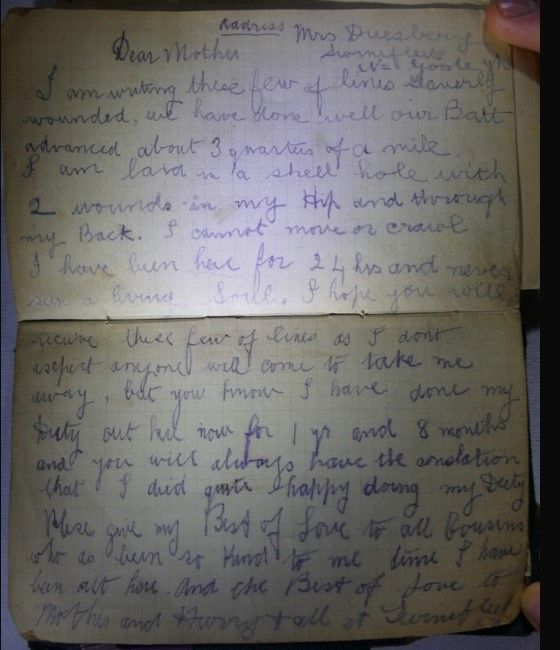 Address Mrs Duesbery
Dear Mother Swinefleet
Nr Goole Yks
I am writing these few of lines Severly
wounded. we have done well our Batt
advanced about 3 quarters of a mile.
I am laid in a shell hole with
2 wounds in my Hip and through
my Back. I cannot move or crawl
I have been here for 24 hrs and never
seen a living Soul. I hope you will
recieve these few of lines as I dont
expect anyone will come to take me
away, but you know I have done my
Duty out here now for 1 yr and 8 months
and you will always have the consolation
that I died quite happy doing my Duty
Please give my Best of Love to all Cousins
who as been so Kind to me time I have
been out here. And the Best of Love to
Mother and Harry & all at Swinefleet